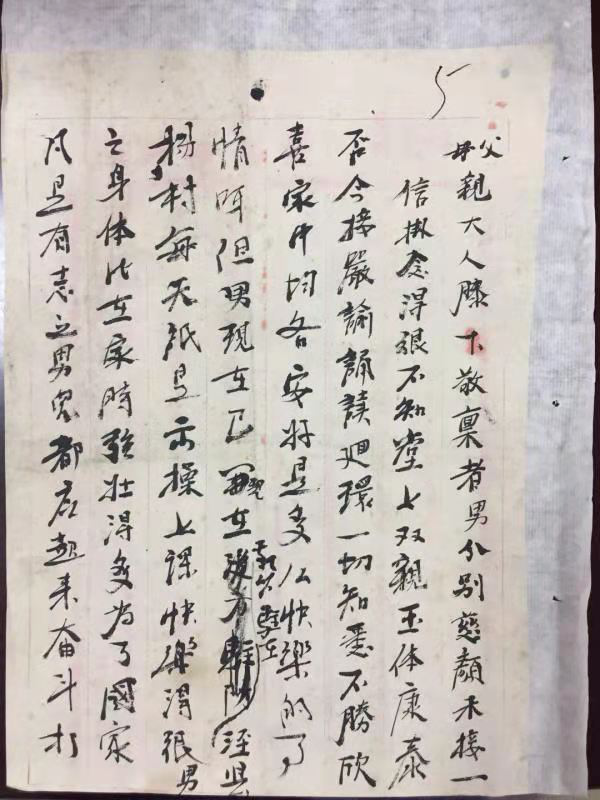 5
父母親大人膝下敬禀者男分别慈顏未接一
信掛念得很不知堂上双親玉体康泰
否今接嚴諭誦讀迴環一切知悉不勝欣
喜家中均各安好是多么快樂的事
情呀但男現在已 在 涇县
楊村每天祇是出操上課快樂得很男
之身体比在家時强壮得多為了國家
凡是有志之男兒都应起来奋斗打